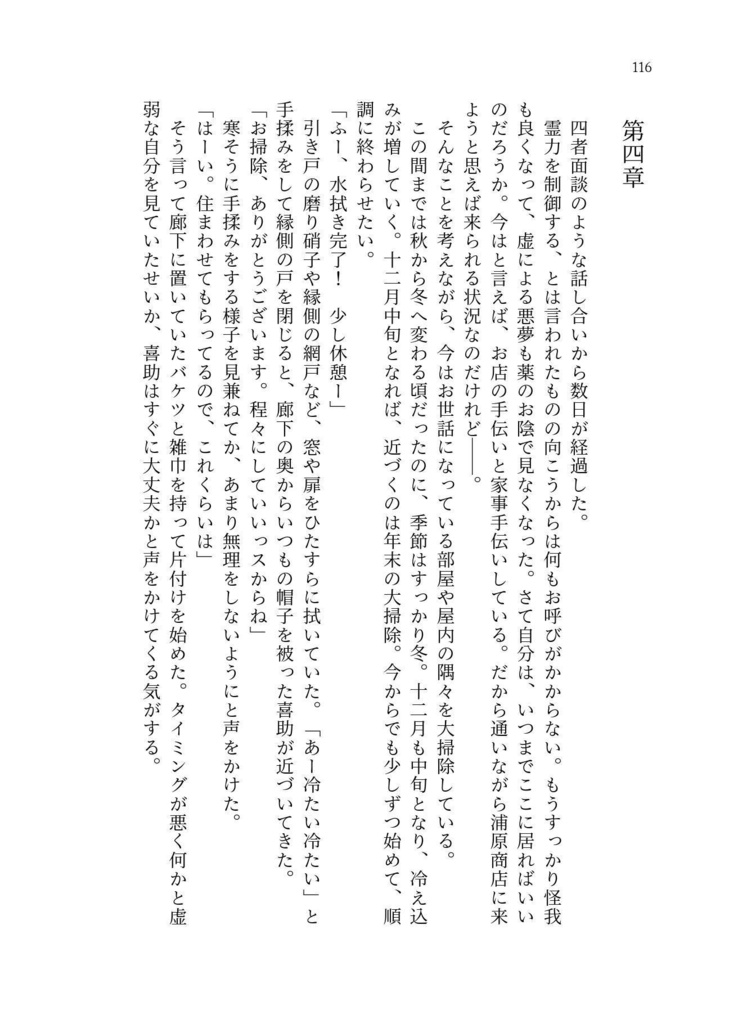 116
第四章
四者面談のような話し合いから数日が経過した。
霊力を制御する、とは言われたものの向こうからは何もお呼びがかからない。もうすっかり怪我
も良くなって、虚による悪夢も薬のお陰で見なくなった。さて自分は、いつまでここに居ればいい
のだろうか。今はと言えば、お店の手伝いと家事手伝いしている。だから通いながら浦原商店に来
ようと思えば来られる状況なのだけれど――。
そんなことを考えながら、今はお世話になっている部屋や屋内の隅々を大掃除している。
この間までは秋から冬へ変わる頃だったのに、季節はすっかり冬。十二月も中旬となり、冷え込
みが増していく。十二月中旬となれば、近づくのは年末の大掃除。今からでも少しずつ始めて、順
調に終わらせたい。
「ふー、水拭き完了！　少し休憩ー」
引き戸の磨り硝子や縁側の網戸など、窓や扉をひたすらに拭いていた。「あー冷たい冷たい」と
手揉みをして縁側の戸を閉じると、廊下の奥からいつもの帽子を被った喜助が近づいてきた。
「お掃除、ありがとうございます。程々にしていいっスからね」
寒そうに手揉みをする様子を見兼ねてか、あまり無理をしないようにと声をかけた。
「はーい。住まわせてもらってるので、これくらいは」
そう言って廊下に置いていたバケツと雑巾を持って片付けを始めた。タイミングが悪く何かと虚
弱な自分を見ていたせいか、喜助はすぐに大丈夫かと声をかけてくる気がする。